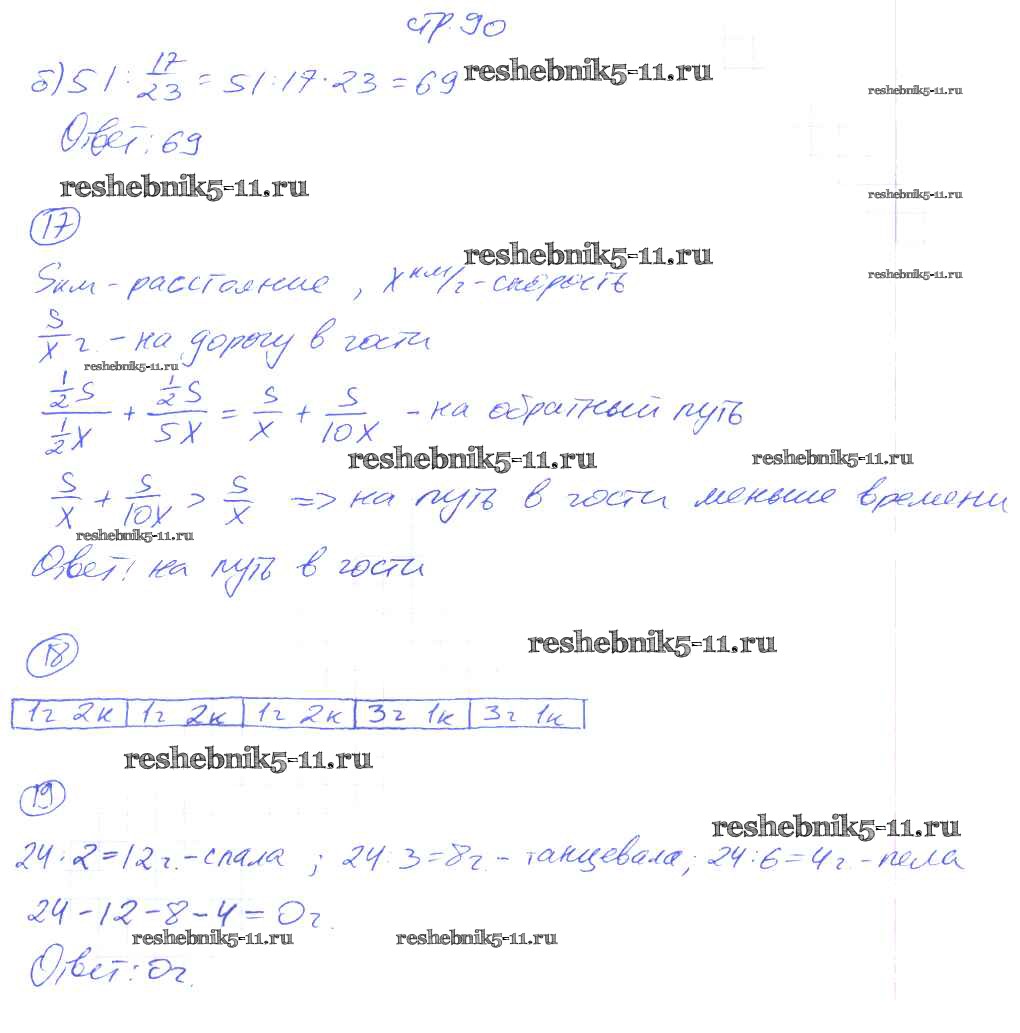 стр. 90
б) 51 : 17/23 = 51 : 17 · 23 = 69 reshebnik5-11.ru
reshebnik5-11.ru
Ответ: 69
reshebnik5-11.ru
reshebnik5-11.ru
17
reshebnik5-11.ru
reshebnik5-11.ru
Sкм - расстояние, x км/г - скорость
S/x г. - на дорогу в гости
reshebnik5-11.ru
(1/2 S)/(1/2 x) + (1/2 S)/(5x) = S/x + S/10x - на обратный путь
reshebnik5-11.ru reshebnik5-11.ru
S/x + S/10x > S/x => на путь в гости меньше времени
reshebnik5-11.ru
Ответ: на путь в гости
18
reshebnik5-11.ru
1г 2к | 1г 2к | 1г 2к | 3г 1к | 3г 1к
reshebnik5-11.ru
19
reshebnik5-11.ru
24 : 2 = 12 г. - спала; 24 : 3 = 8 г. - танцевала; 24 : 6 = 4 г. - пела
24 - 12 - 8 - 4 = 0 г.
reshebnik5-11.ru reshebnik5-11.ru
Ответ: 0 г.